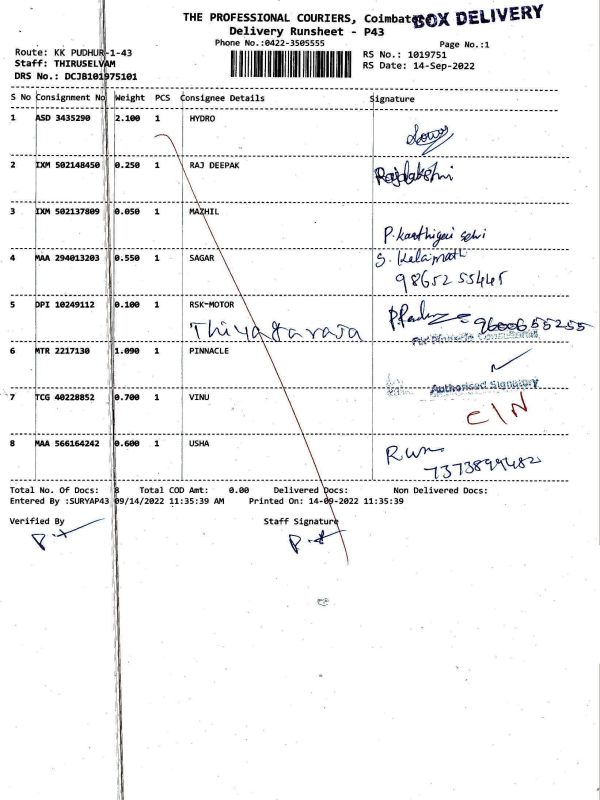 THE PROFESSIONAL COURIERS, Coimbatore
BOX DELIVERY
Delivery Runsheet - P43
Phone No.:0422-3505555
Page No.:1
Route: KK PUDHUR-1-43
RS No.: 1019751
Staff: THIRUSELVAM
RS Date: 14-Sep-2022
DRS No.: DCJB101975101
S No Consignment No Weight PCS Consignee Details Signature
1 ASD 3435290 2.100 1 HYDRO
2 IXM 502148450 0.250 1 RAJ DEEPAK Rajalakshmi
3 IXM 502137809 0.050 1 MAZHIL
P. Karthigai selvi
4 MAA 294013203 0.550 1 SAGAR S. Kalaimathi
98652 55445
5 DPI 10249112 0.100 1 RSK-MOTOR
Thiyagaraja 9600655255
6 MTR 2217130 1.090 1 PINNACLE
Authorised Signatory
7 TCG 40228852 0.700 1 VINU
C/N
8 MAA 566164242 0.600 1 USHA
7373899482
Total No. Of Docs: 8 Total COD Amt: 0.00 Delivered Docs: Non Delivered Docs:
Entered By :SURYAP43 09/14/2022 11:35:39 AM Printed On: 14-09-2022 11:35:39
Verified By Staff Signature